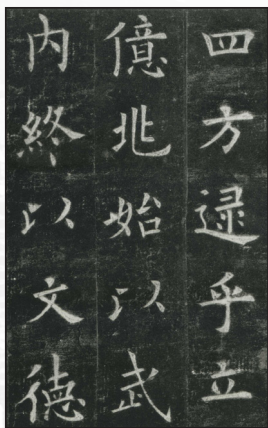 四方逯乎立
億兆始以武
內終以文德